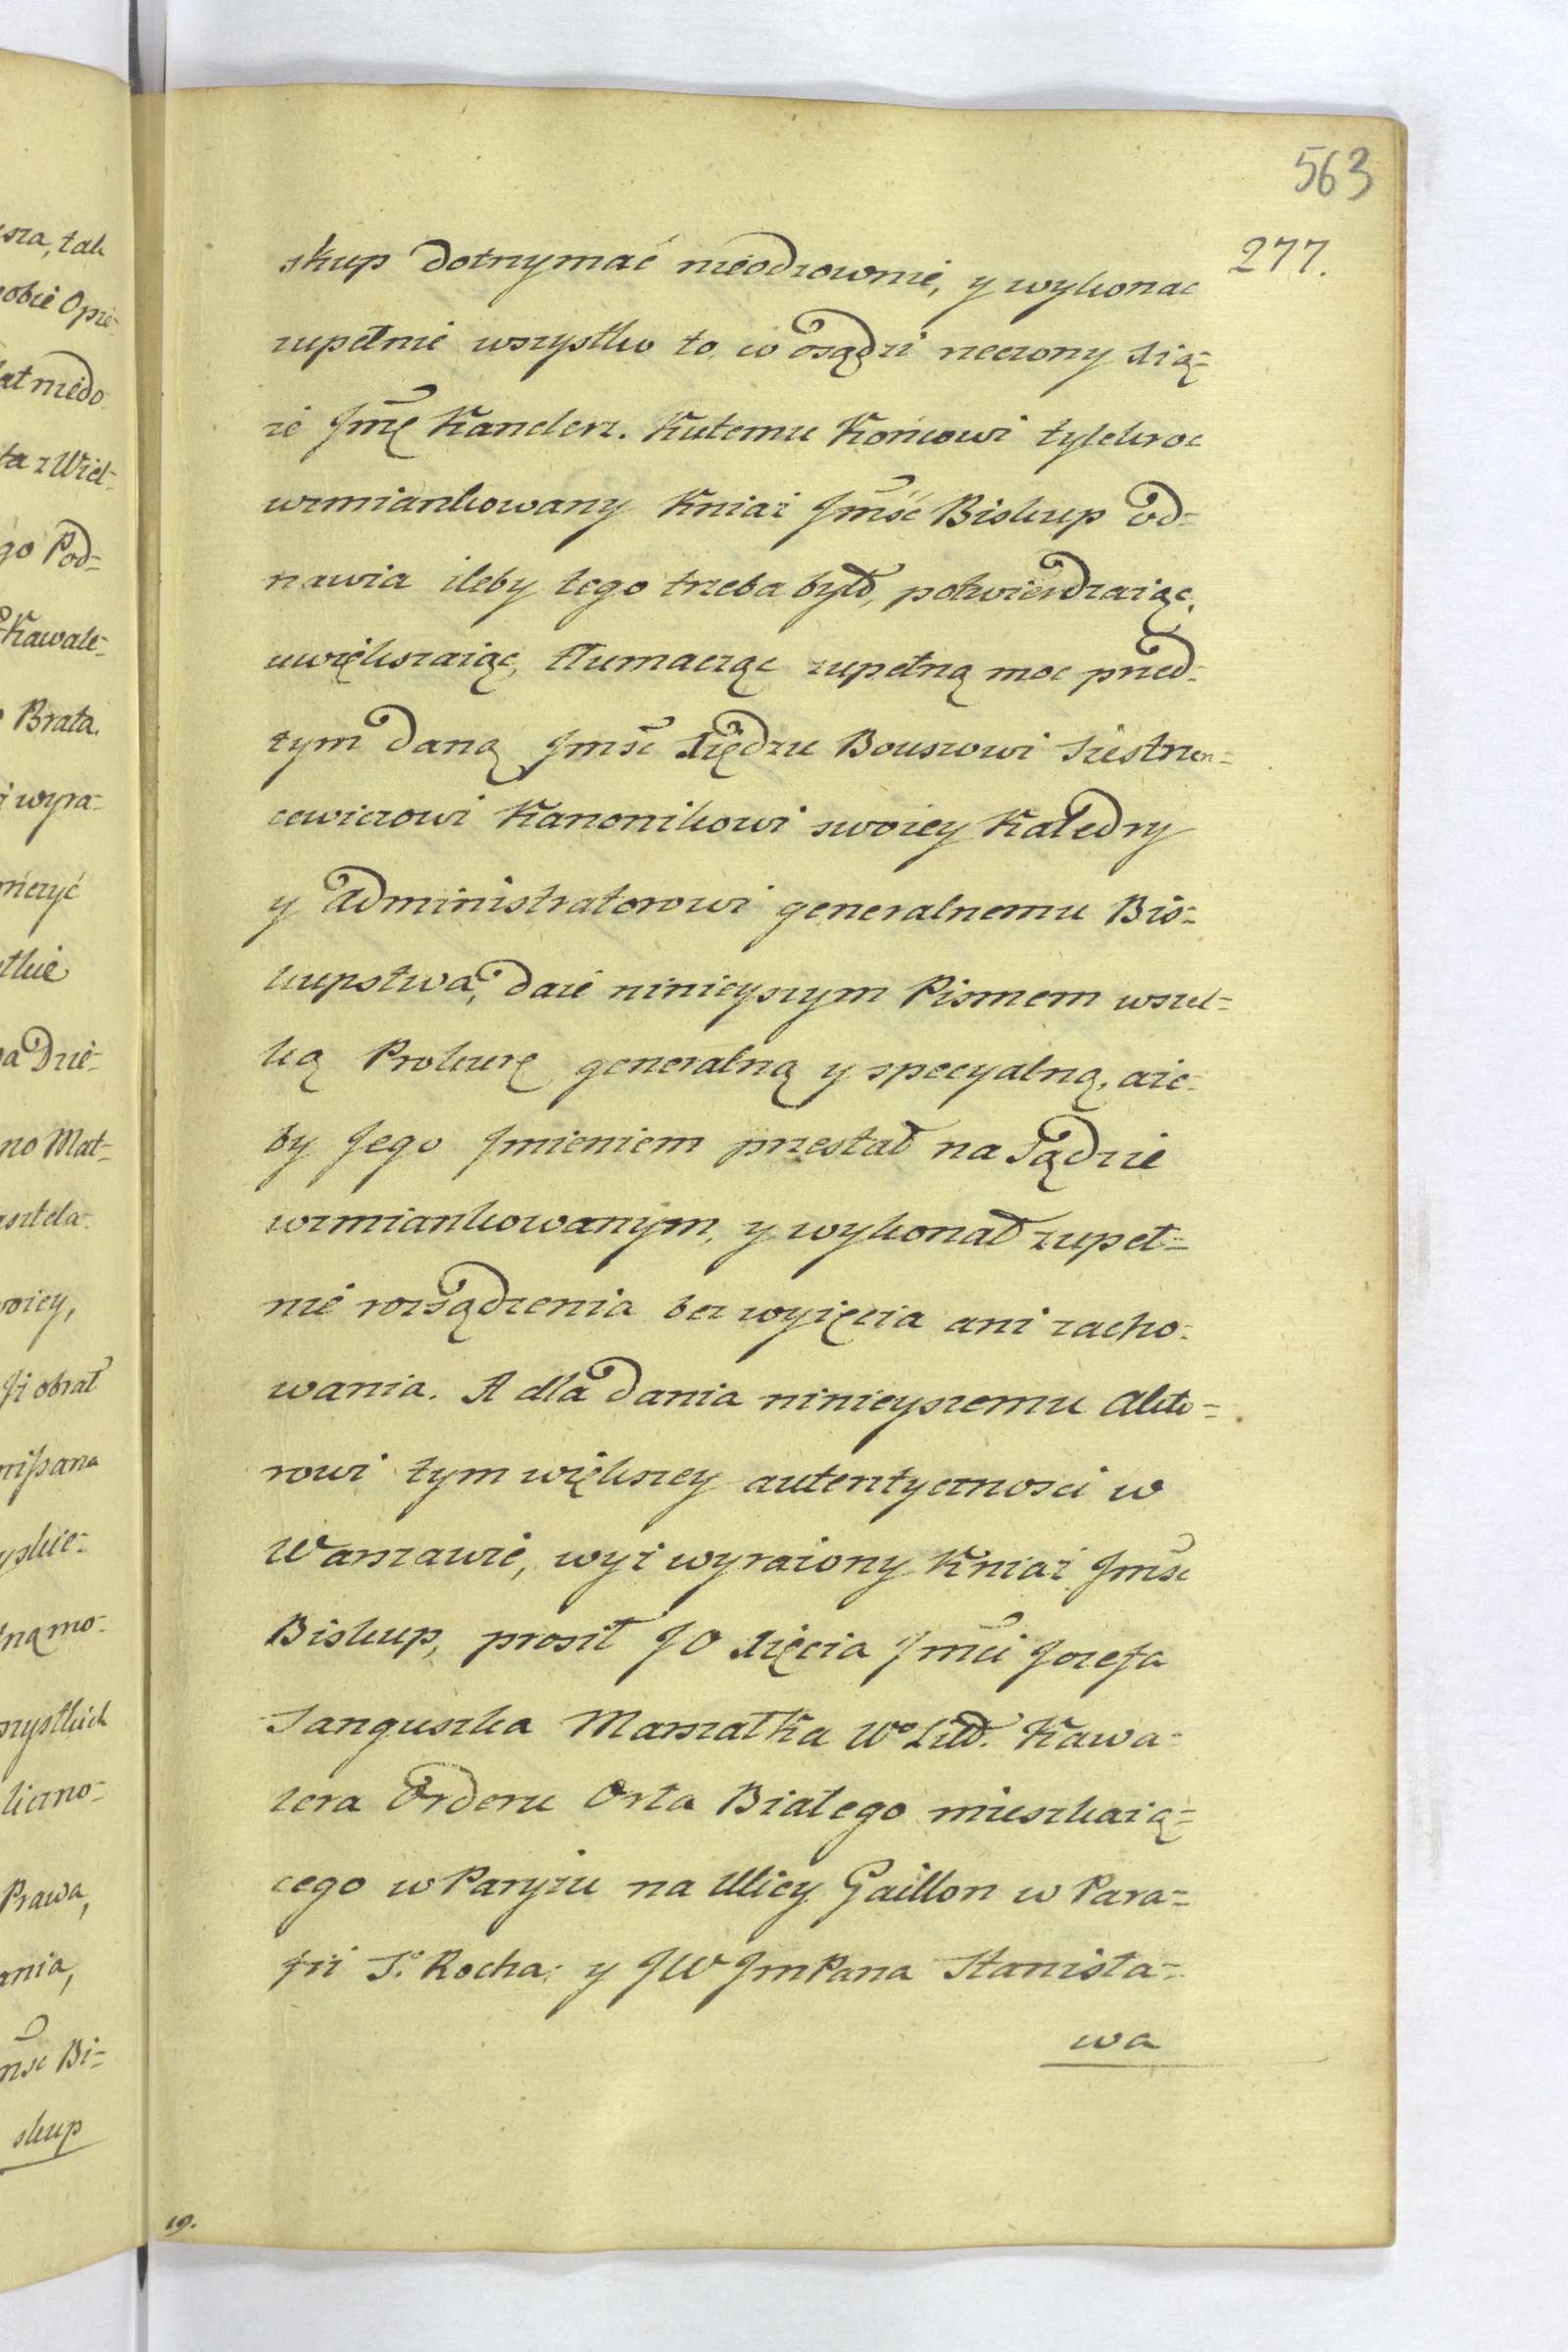 563
277.
skup dotrzymać nieodzownie, y wykonac
zupełnie wszystko to, co osądzi rzeczony Xią=
że Jmę Kanclerz. Ku temu Końcowi tylekroc
wzmiankowany Kniaź Jmść Biskup od=
nawia ileby tego trzeba było, potwierdzaiąc,
uwiększaiąc, tłumacząc zupełną moc przed=
tym daną Jmsc Xiędzu Bouszowi Siestrzen=
cewiczowi Kanonikowi swoiey Katedry
y Administratorowi generalnemu Bis=
kupstwa, daie ninieyszym Pismem wszel=
ką Prokurę generalną y specyalną, aże=
by Jego Jmieniem przestał na Sądzie
wzmiankowanym, y wykonał zupeł=
nie rozsądzenia bez wyięcia ani zacho=
wania. A dla dania ninieyszemu Akto=
rowi tym większey autentycznosci w
Warszawie, wyż wyrażony Kniaź Jmsc
Biskup, prosił JO Xięcia Jmci Jozefa
Sanguszka Marszałka Wo Litt. Kawa=
lera Orderu Orła Białego mieszkaią=
cego w Paryżu na Ulicy Gaillon w Para=
fii So Rocha; y JW JmPana Stanisła=
wa
19.
sza, tak
sobie Opie=
łat niedo
ta z Wiel=
go Pod=
Kawale=
Brata.
wyra=
nczyć
tkie
a Dzie=
no Mat=
asztela=
woiey,
Ji obrał
mißana
yskie=
ną mo=
wszystkich
liczno=
Prawa,
ania,
msc Bi=
skup